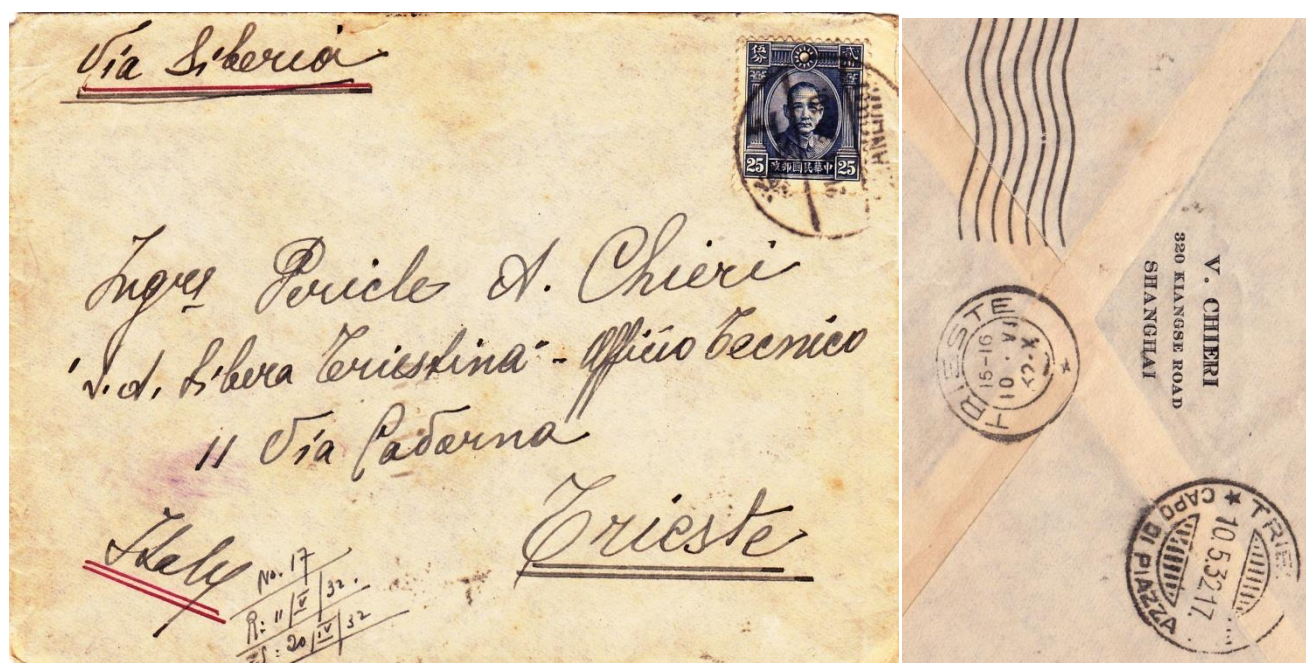 Via Siberia
伍分 貳
25 中華民國郵政 25
Ingre Pericle A. Chieri
s.d. Libera Triestina" - Officio Tecnico
11 Via Cadorna
Trieste
Italy
No. 17
R: 11/V/32.
S: 20/IV/32
V. CHIERI
320 KIANGSE ROAD
SHANGHAI
TRIESTE
15-16
10 . V
X
TRIE
CAPO DI PIAZZA
10.5.32.17.